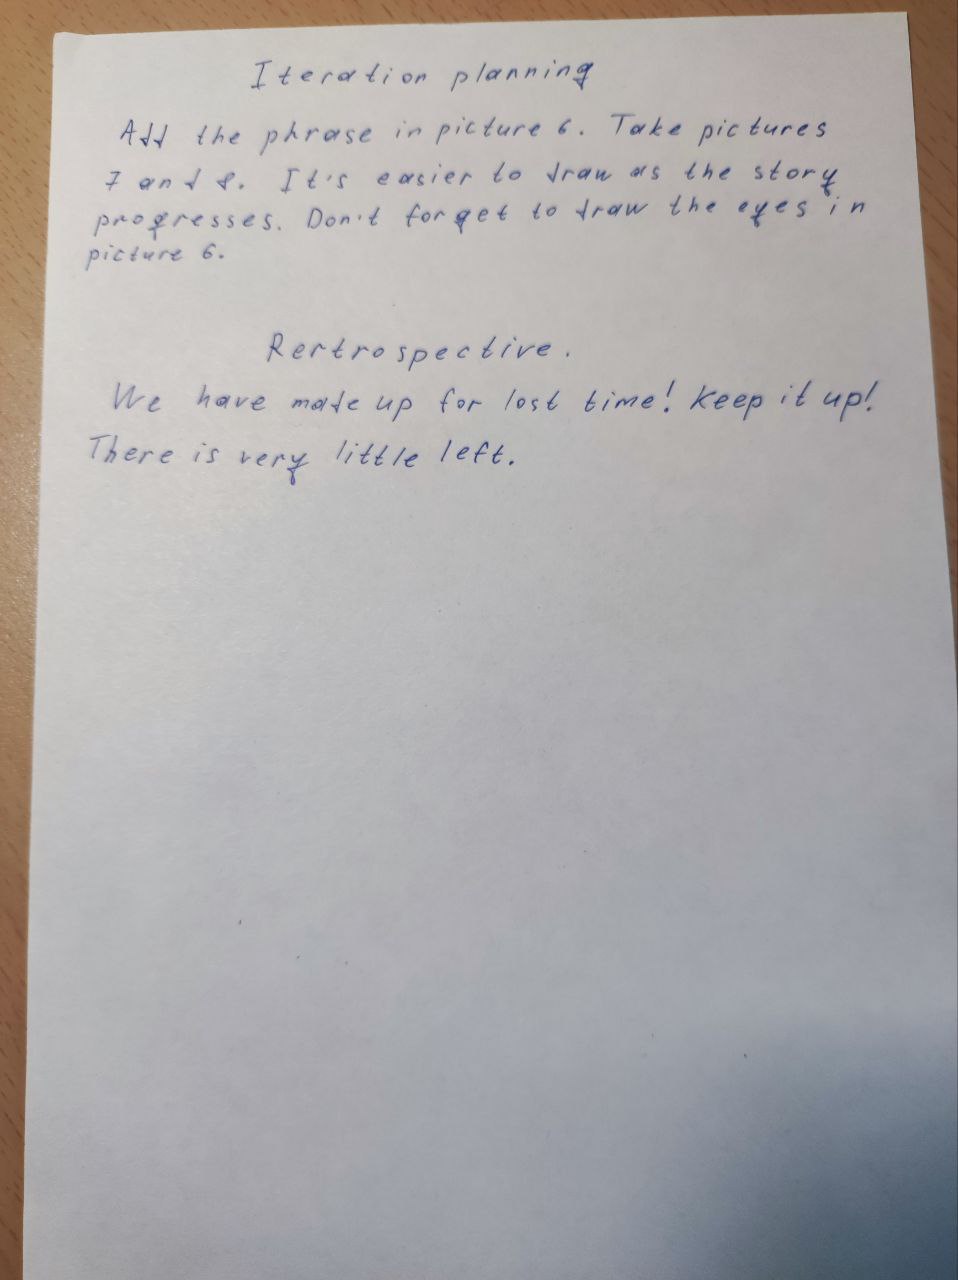 Iteration planning
Add the phrase in picture 6. Take pictures
7 and 8. It's easier to draw as the story
progresses. Don't forget to draw the eyes in
picture 6.
Rertrospective.
We have made up for lost time! Keep it up!
There is very little left.